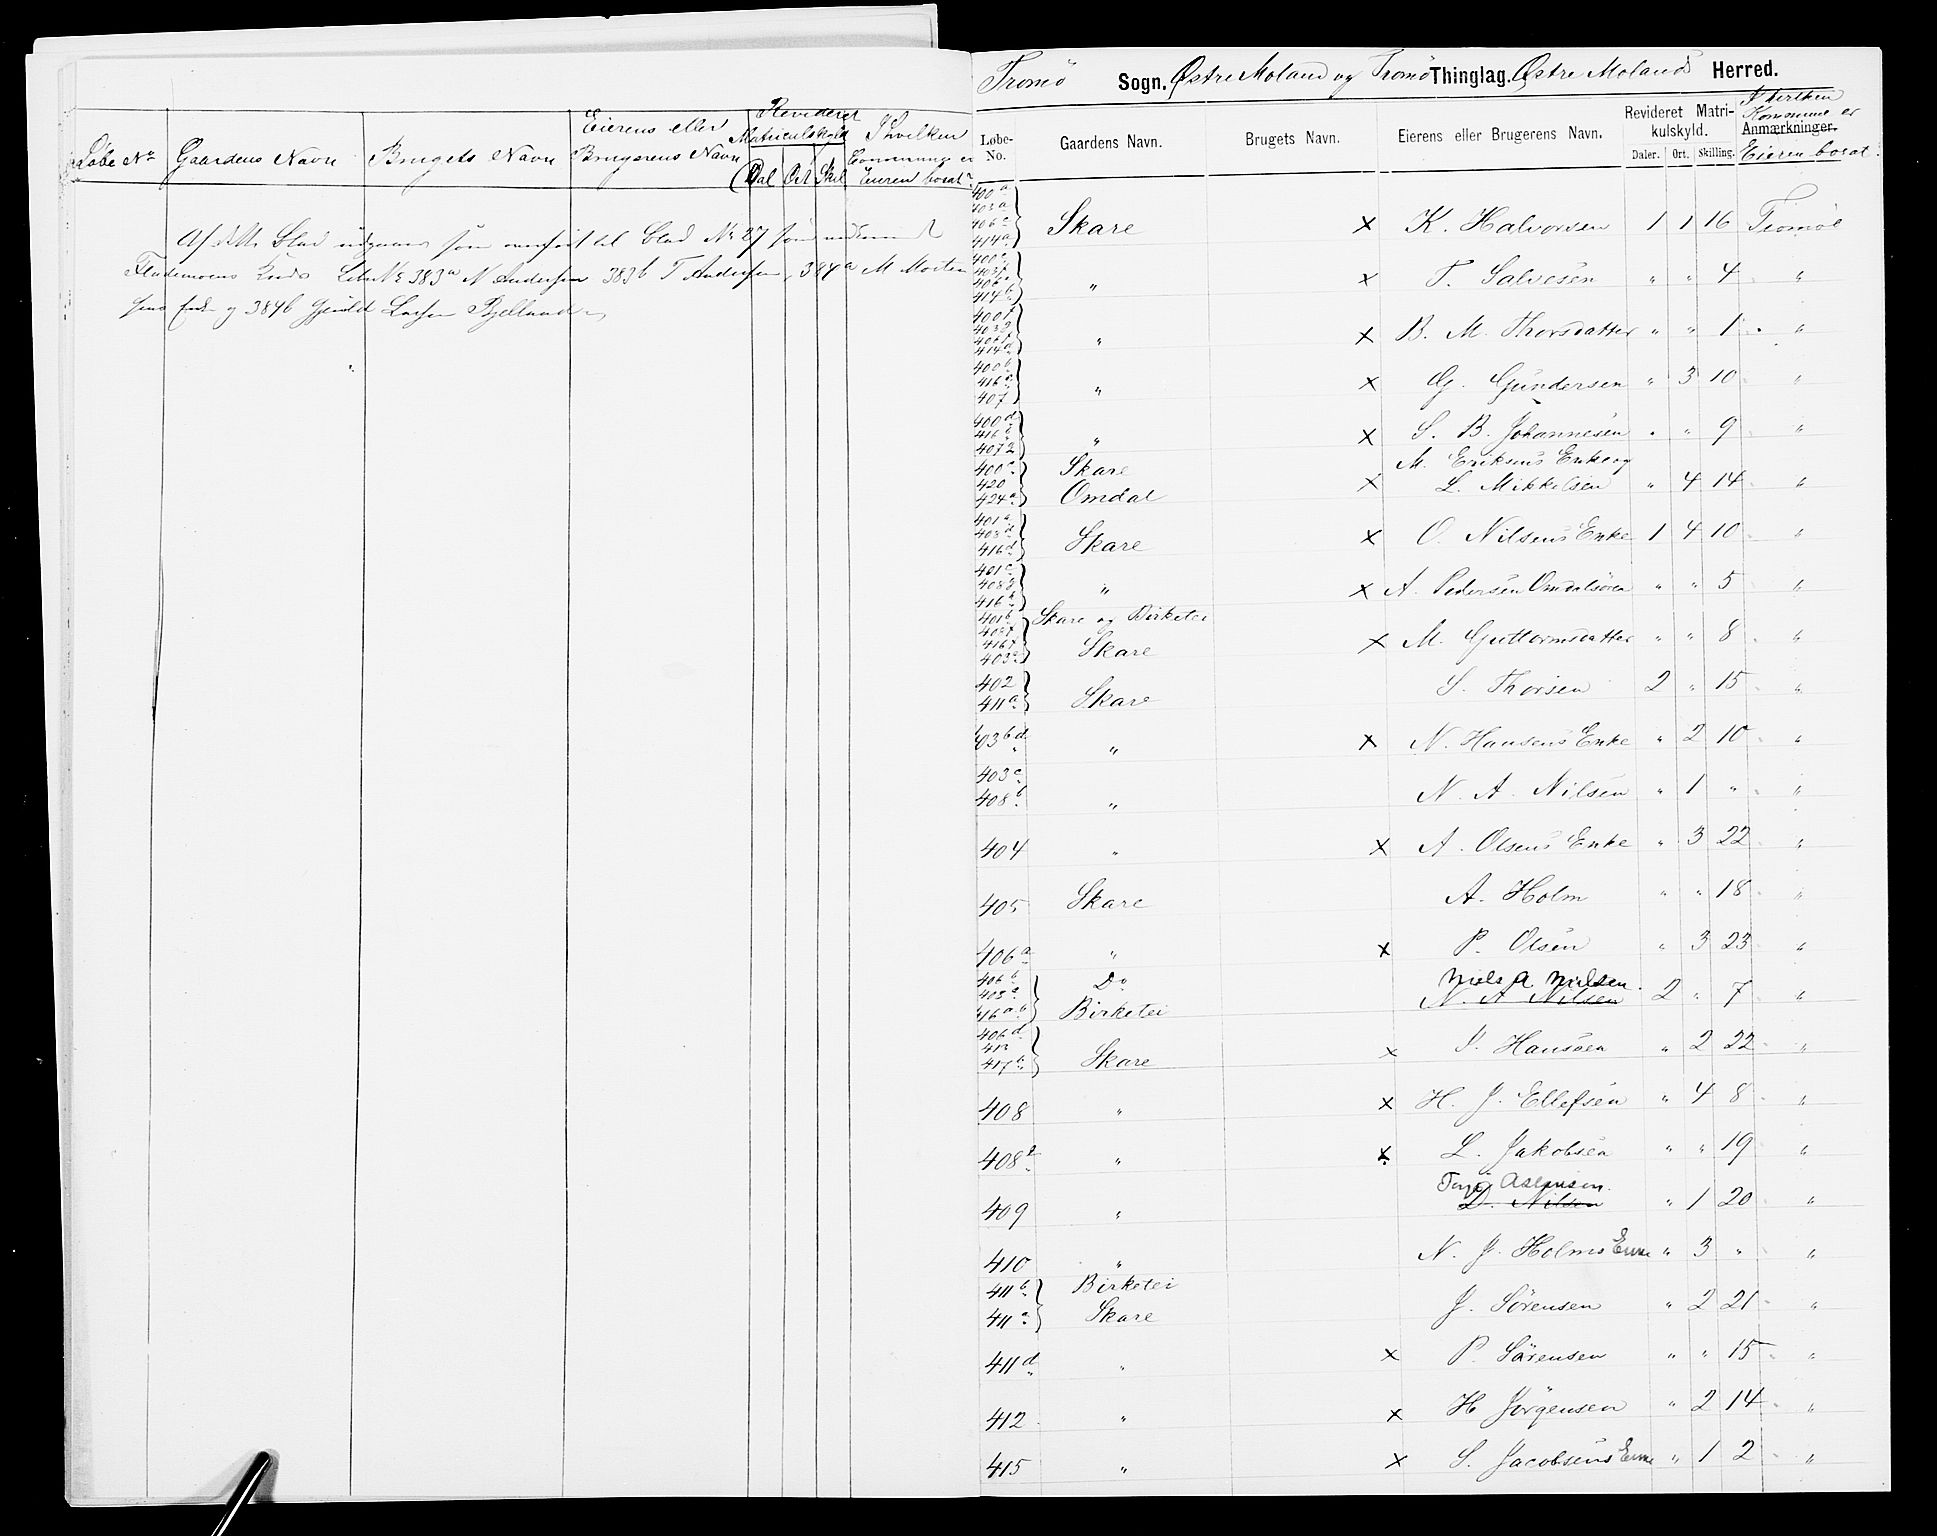 Løbe No Gaardens Navn Brugets Navn Eierens eller Brugerens Navn Revideret Matriculskyld Dal Ort Skil I hvilken Commune er Eieren bosat
Af dette Blad udgaaer som overført til Blad No 27
383a N Andersen 383b T Andersen, 384a M Morten
sens Enke og 384b Lassen Bjelland
Tromø Sogn. Østre Moland og Tromø Thinglag. Østre Molands Herred.
Løbe-No. Gaardens Navn. Brugets Navn. Eierens eller Brugerens Navn. Revideret Matrikulskyld. Daler. Ort. Skilling. Anmærkninger. I hvilken Kommune er Eieren bosat.
400a 403a 406c 414a Skare × K. Halvorsen 1 1 16 Tromøe
414b " × T. Salvesen " " 4 "
414d " × B. M. Thorsdatter " " 1 "
400b 416c 407 " × G. Gundersen " 3 10 "
400d 416b 407 2 " × S. B. Johannesen " " 9 "
400e 420 424a Skare Omdal × M. Eriksens Enke og L. Mikkelsen " 4 14 "
401a 403d 416d Skare × O. Nilsens Enke 1 4 10 "
401c 408g 416h " × A. Pedersen Omdalsøren " " 5 "
401b 416f 403c Skare og Birketei Skare × M. Guttormsdatter " " 8 "
402 411a Skare S. Thorsen 2 " 15 "
403b d " × N. Hansens Enke " 2 10 "
403c 408b " N. A. Nilsen " 1 " "
404 " × A. Olsens Enke " 3 22 "
405 Skare A. Holm " " 18 "
406a " × P. Olsen " 3 23 "
406b 403e 416a b Do Birketei Niels A Nielsen. N. A Nilsen 2 " 7 "
406d 413 417b Skare × P. Hansen " 2 22 "
408 " × H. J. Ellefsen " 4 8 "
408 2 " × L. Jakobsen " " 19 "
409 " D. Nilsen " 1 20 "
410 " N. J. Holms Enke " 3 " "
411b 411c Birketei Skare J. Sørensen " 2 21 "
411d " × P. Sørensen " " 15 "
412 " × H Jørgensen " 2 14 "
415 " × S. Jacobsens Enke " 1 2 "